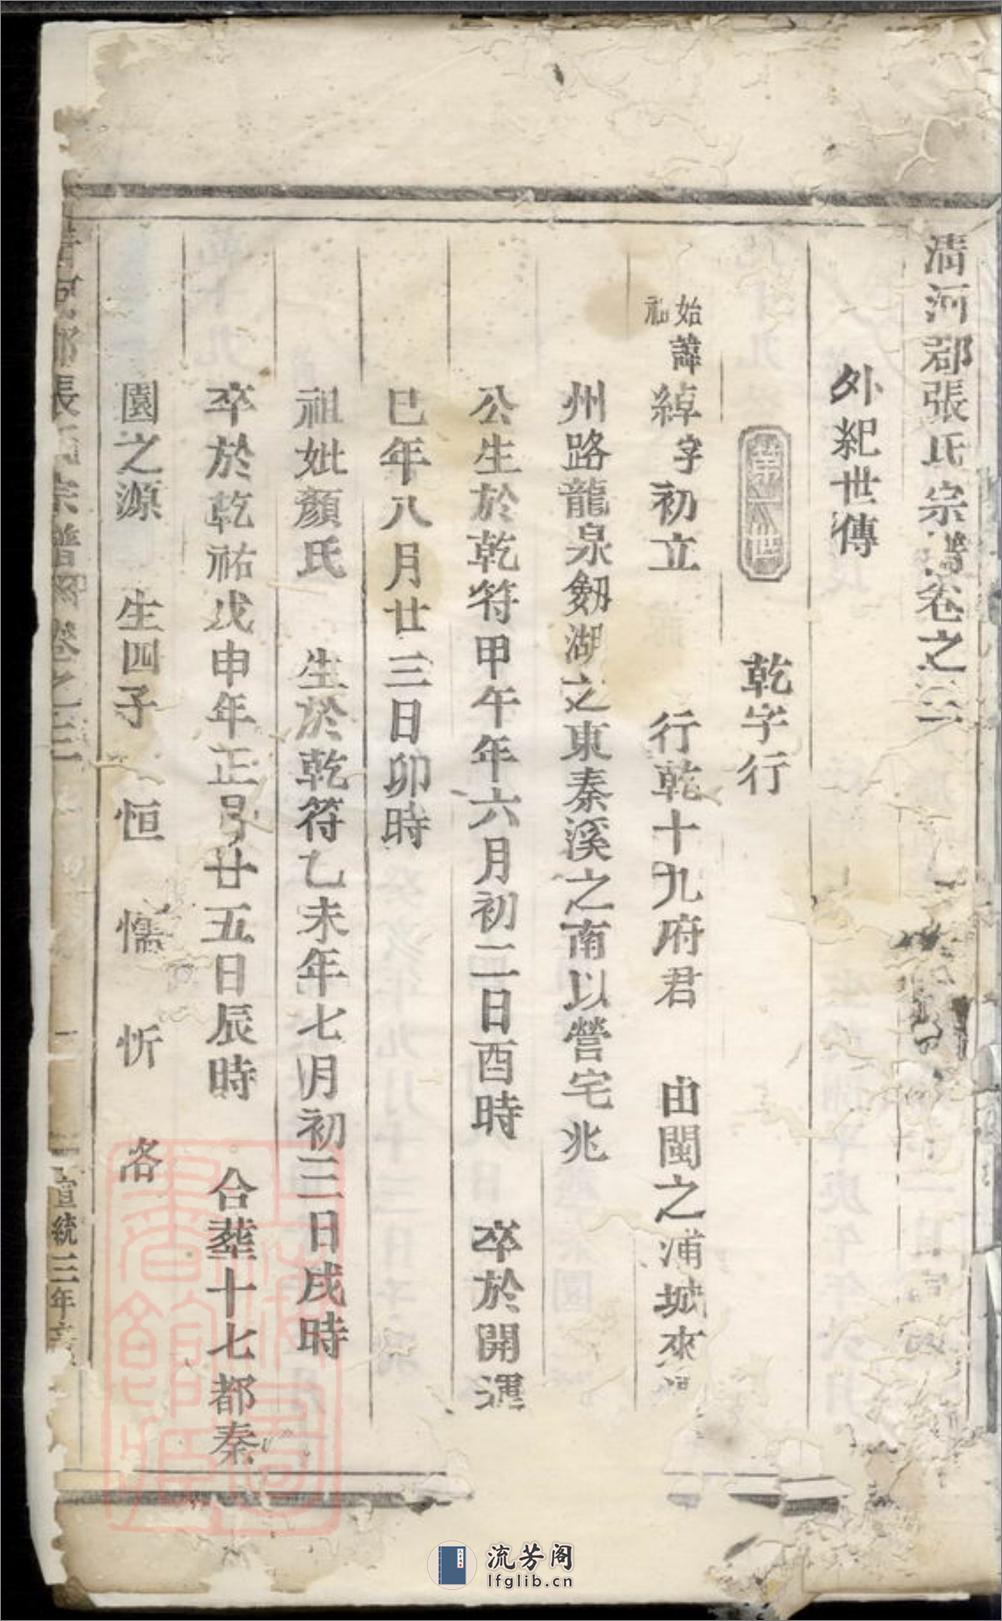 清河郡張氏宗譜卷之三
外紀世傳
第一世 乾字行
始祖 諱綽字初立 行乾十九府君 由閩之浦城來
州路龍泉劔湖之東秦溪之南以營宅兆
公生於乾符甲午年六月初二日酉時 卒於開運
巳年八月廿三日卯時
祖妣顏氏 生於乾符乙未年七月初三日戌時
卒於乾祐戊申年正月廿五日辰時 合塟十七都秦
園之源 生四子 恒 懦 忻 洺
清河郡張氏宗譜 卷之三
宣統三年
流芳阁
lfglib.cn